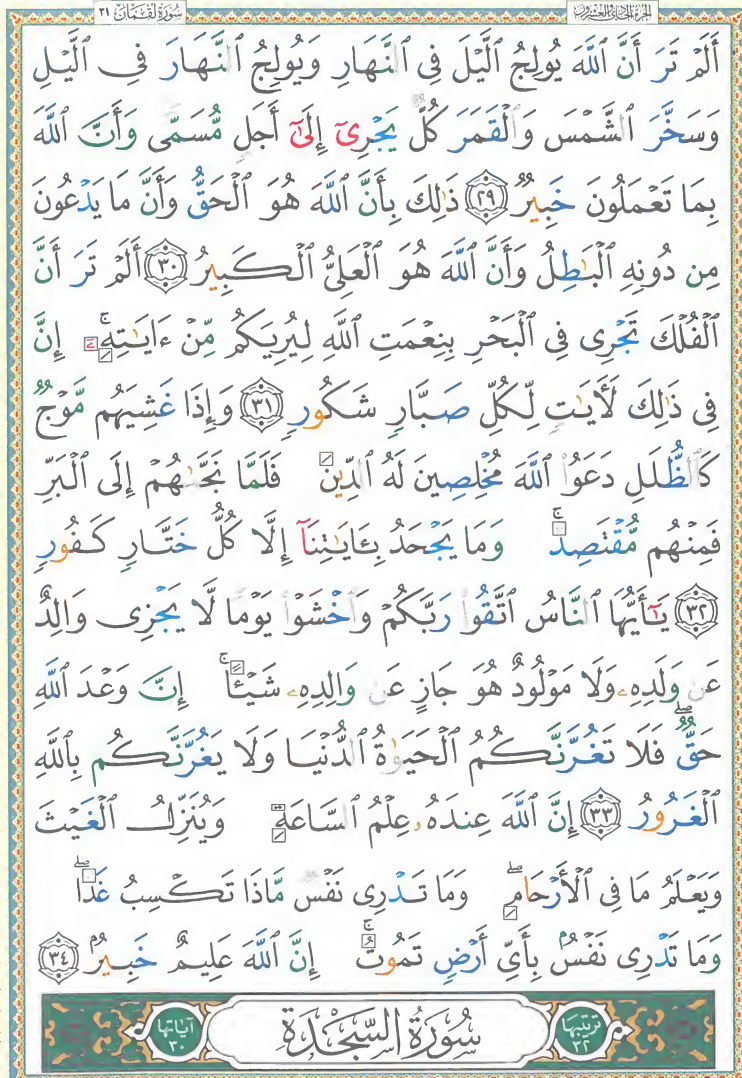 سُورَةُ لُقْمَان ٣١
الجزء الحادي والعشرون
أَلَمۡ تَرَ أَنَّ ٱللَّهَ يُولِجُ ٱلَّيۡلَ فِي ٱلنَّهَارِ وَيُولِجُ ٱلنَّهَارَ فِي ٱلَّيۡلِ
وَسَخَّرَ ٱلشَّمۡسَ وَٱلۡقَمَرَ كُلّٞ يَجۡرِيٓ إِلَىٰٓ أَجَلٖ مُّسَمّٗى وَأَنَّ ٱللَّهَ
بِمَا تَعۡمَلُونَ خَبِيرٞ ٢٩ ذَٰلِكَ بِأَنَّ ٱللَّهَ هُوَ ٱلۡحَقُّ وَأَنَّ مَا يَدۡعُونَ
مِن دُونِهِ ٱلۡبَٰطِلُ وَأَنَّ ٱللَّهَ هُوَ ٱلۡعَلِيُّ ٱلۡكَبِيرُ ٣٠ أَلَمۡ تَرَ أَنَّ
ٱلۡفُلۡكَ تَجۡرِي فِي ٱلۡبَحۡرِ بِنِعۡمَتِ ٱللَّهِ لِيُرِيَكُم مِّنۡ ءَايَٰتِهِۦٓۚ إِنَّ
فِي ذَٰلِكَ لَأٓيَٰتٖ لِّكُلِّ صَبَّارٖ شَكُورٖ ٣١ وَإِذَا غَشِيَهُم مَّوۡجٞ
كَٱلظُّلَلِ دَعَوُاْ ٱللَّهَ مُخۡلِصِينَ لَهُ ٱلدِّينَ فَلَمَّا نَجَّىٰهُمۡ إِلَى ٱلۡبَرِّ
فَمِنۡهُم مُّقۡتَصِدٞۚ وَمَا يَجۡحَدُ بِـَٔايَٰتِنَآ إِلَّا كُلُّ خَتَّارٖ كَفُورٖ
٣٢ يَٰٓأَيُّهَا ٱلنَّاسُ ٱتَّقُواْ رَبَّكُمۡ وَٱخۡشَوۡاْ يَوۡمٗا لَّا يَجۡزِي وَالِدٌ
عَن وَلَدِهِۦ وَلَا مَوۡلُودٌ هُوَ جَازٍ عَن وَالِدِهِۦ شَيۡـًٔاۚ إِنَّ وَعۡدَ ٱللَّهِ
حَقّٞۖ فَلَا تَغُرَّنَّكُمُ ٱلۡحَيَوٰةُ ٱلدُّنۡيَا وَلَا يَغُرَّنَّكُم بِٱللَّهِ
ٱلۡغَرُورُ ٣٣ إِنَّ ٱللَّهَ عِندَهُۥ عِلۡمُ ٱلسَّاعَةِ وَيُنَزِّلُ ٱلۡغَيۡثَ
وَيَعۡلَمُ مَا فِي ٱلۡأَرۡحَامِۖ وَمَا تَدۡرِي نَفۡسٞ مَّاذَا تَكۡسِبُ غَدٗاۖ
وَمَا تَدۡرِي نَفۡسُۢ بِأَيِّ أَرۡضٖ تَمُوتُۚ إِنَّ ٱللَّهَ عَلِيمٌ خَبِيرُۢ ٣٤
ترتيبها ٣٢
سُورَةُ السَّجْدَةِ
آياتها ٣٠